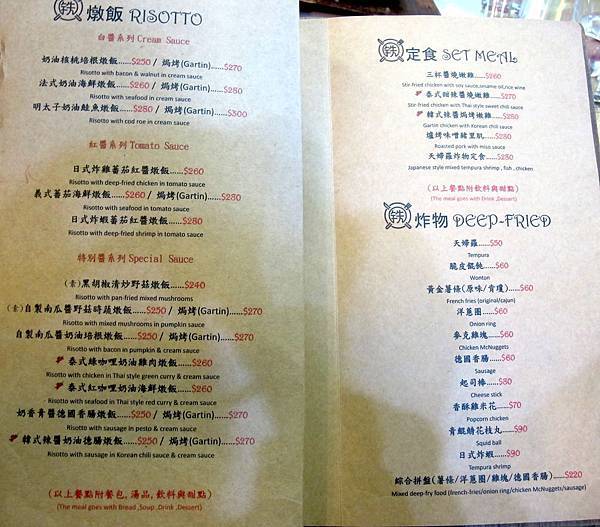 铁 燉飯 RISOTTO
白醬系列 Cream Sauce
奶油核桃培根燉飯......$250 / 焗烤(Gartin)......$270
Risotto with bacon & walnut in cream sauce
法式奶油海鮮燉飯......$260 / 焗烤(Gartin)......$280
Risotto with seafood in cream sauce
明太子奶油鮭魚燉飯......$280 / 焗烤(Gartin)......$300
Risotto with cod roe in cream sauce
紅醬系列 Tomato Sauce
日式炸雞蕃茄紅醬燉飯......$260
Risotto with deep-fried chicken in tomato sauce
義式蕃茄海鮮燉飯......$260 / 焗烤(Gartin)......$280
Risotto with seafood in tomato sauce
日式炸蝦蕃茄紅醬燉飯......$280
Risotto with deep-fried shrimp in tomato sauce
特別醬系列 Special Sauce
(素)黑胡椒清炒野菇燉飯......$240
Risotto with pan-fried mixed mushrooms
(素)自製南瓜醬野菇時蔬燉飯......$250 / 焗烤(Gartin)......$270
Risotto with mixed mushrooms in pumpkin sauce
自製南瓜醬奶油培根燉飯......$250 / 焗烤(Gartin)......$270
Risotto with bacon in pumpkin & cream sauce
泰式綠咖哩奶油雞肉燉飯......$260
Risotto with chicken in Thai style green curry & cream sauce
泰式紅咖哩奶油海鮮燉飯......$260
Risotto with seafood in Thai style red curry & cream sauce
奶香青醬德國香腸燉飯......$250 / 焗烤(Gartin)......$270
Risotto with sausage in pesto & cream sauce
韓式辣醬奶油德腸燉飯......$250 / 焗烤(Gartin)......$270
Risotto with sausage in Korean chili sauce & cream sauce
(以上餐點附餐包,湯品,飲料與甜點)
(The meal goes with Bread ,Soup ,Drink ,Dessert)
铁 定食 SET MEAL
三杯醬燒嫩雞......$260
Stir-fried chicken with soy sauce,sesame oil,rice wine
泰式甜辣醬嫩雞......$270
Stir-fried chicken with Thai style sweet chili sauce
韓式辣醬焗烤嫩雞......$280
Gartin chicken with Korean chili sauce
爐烤味噌豬里肌......$280
Roasted pork with miso sauce
天婦羅炸物定食......$280
Japanese style mixed tempura shrimp , fish , chicken
(以上餐點附飲料與甜點)
(The meal goes with Drink ,Dessert)
铁 炸物 DEEP-FRIED
天婦羅......$50
Tempura
脆皮餛飩......$60
Wonton
黃金薯條(原味/肯瓊)......$60
French fries (original/cajun)
洋蔥圈......$60
Onion ring
麥克雞塊......$60
Chicken McNuggets
德國香腸......$60
Sausage
起司棒......$80
Cheese stick
香酥雞米花......$70
Popcorn chicken
青龍蝦花枝丸......$90
Squid ball
日式炸蝦......$90
Tempura shrimp
綜合拼盤(薯條/洋蔥圈/雞塊/德國香腸)......$220
Mixed deep-fry food (french-fries/onion ring/chicken McNuggets/sausage)